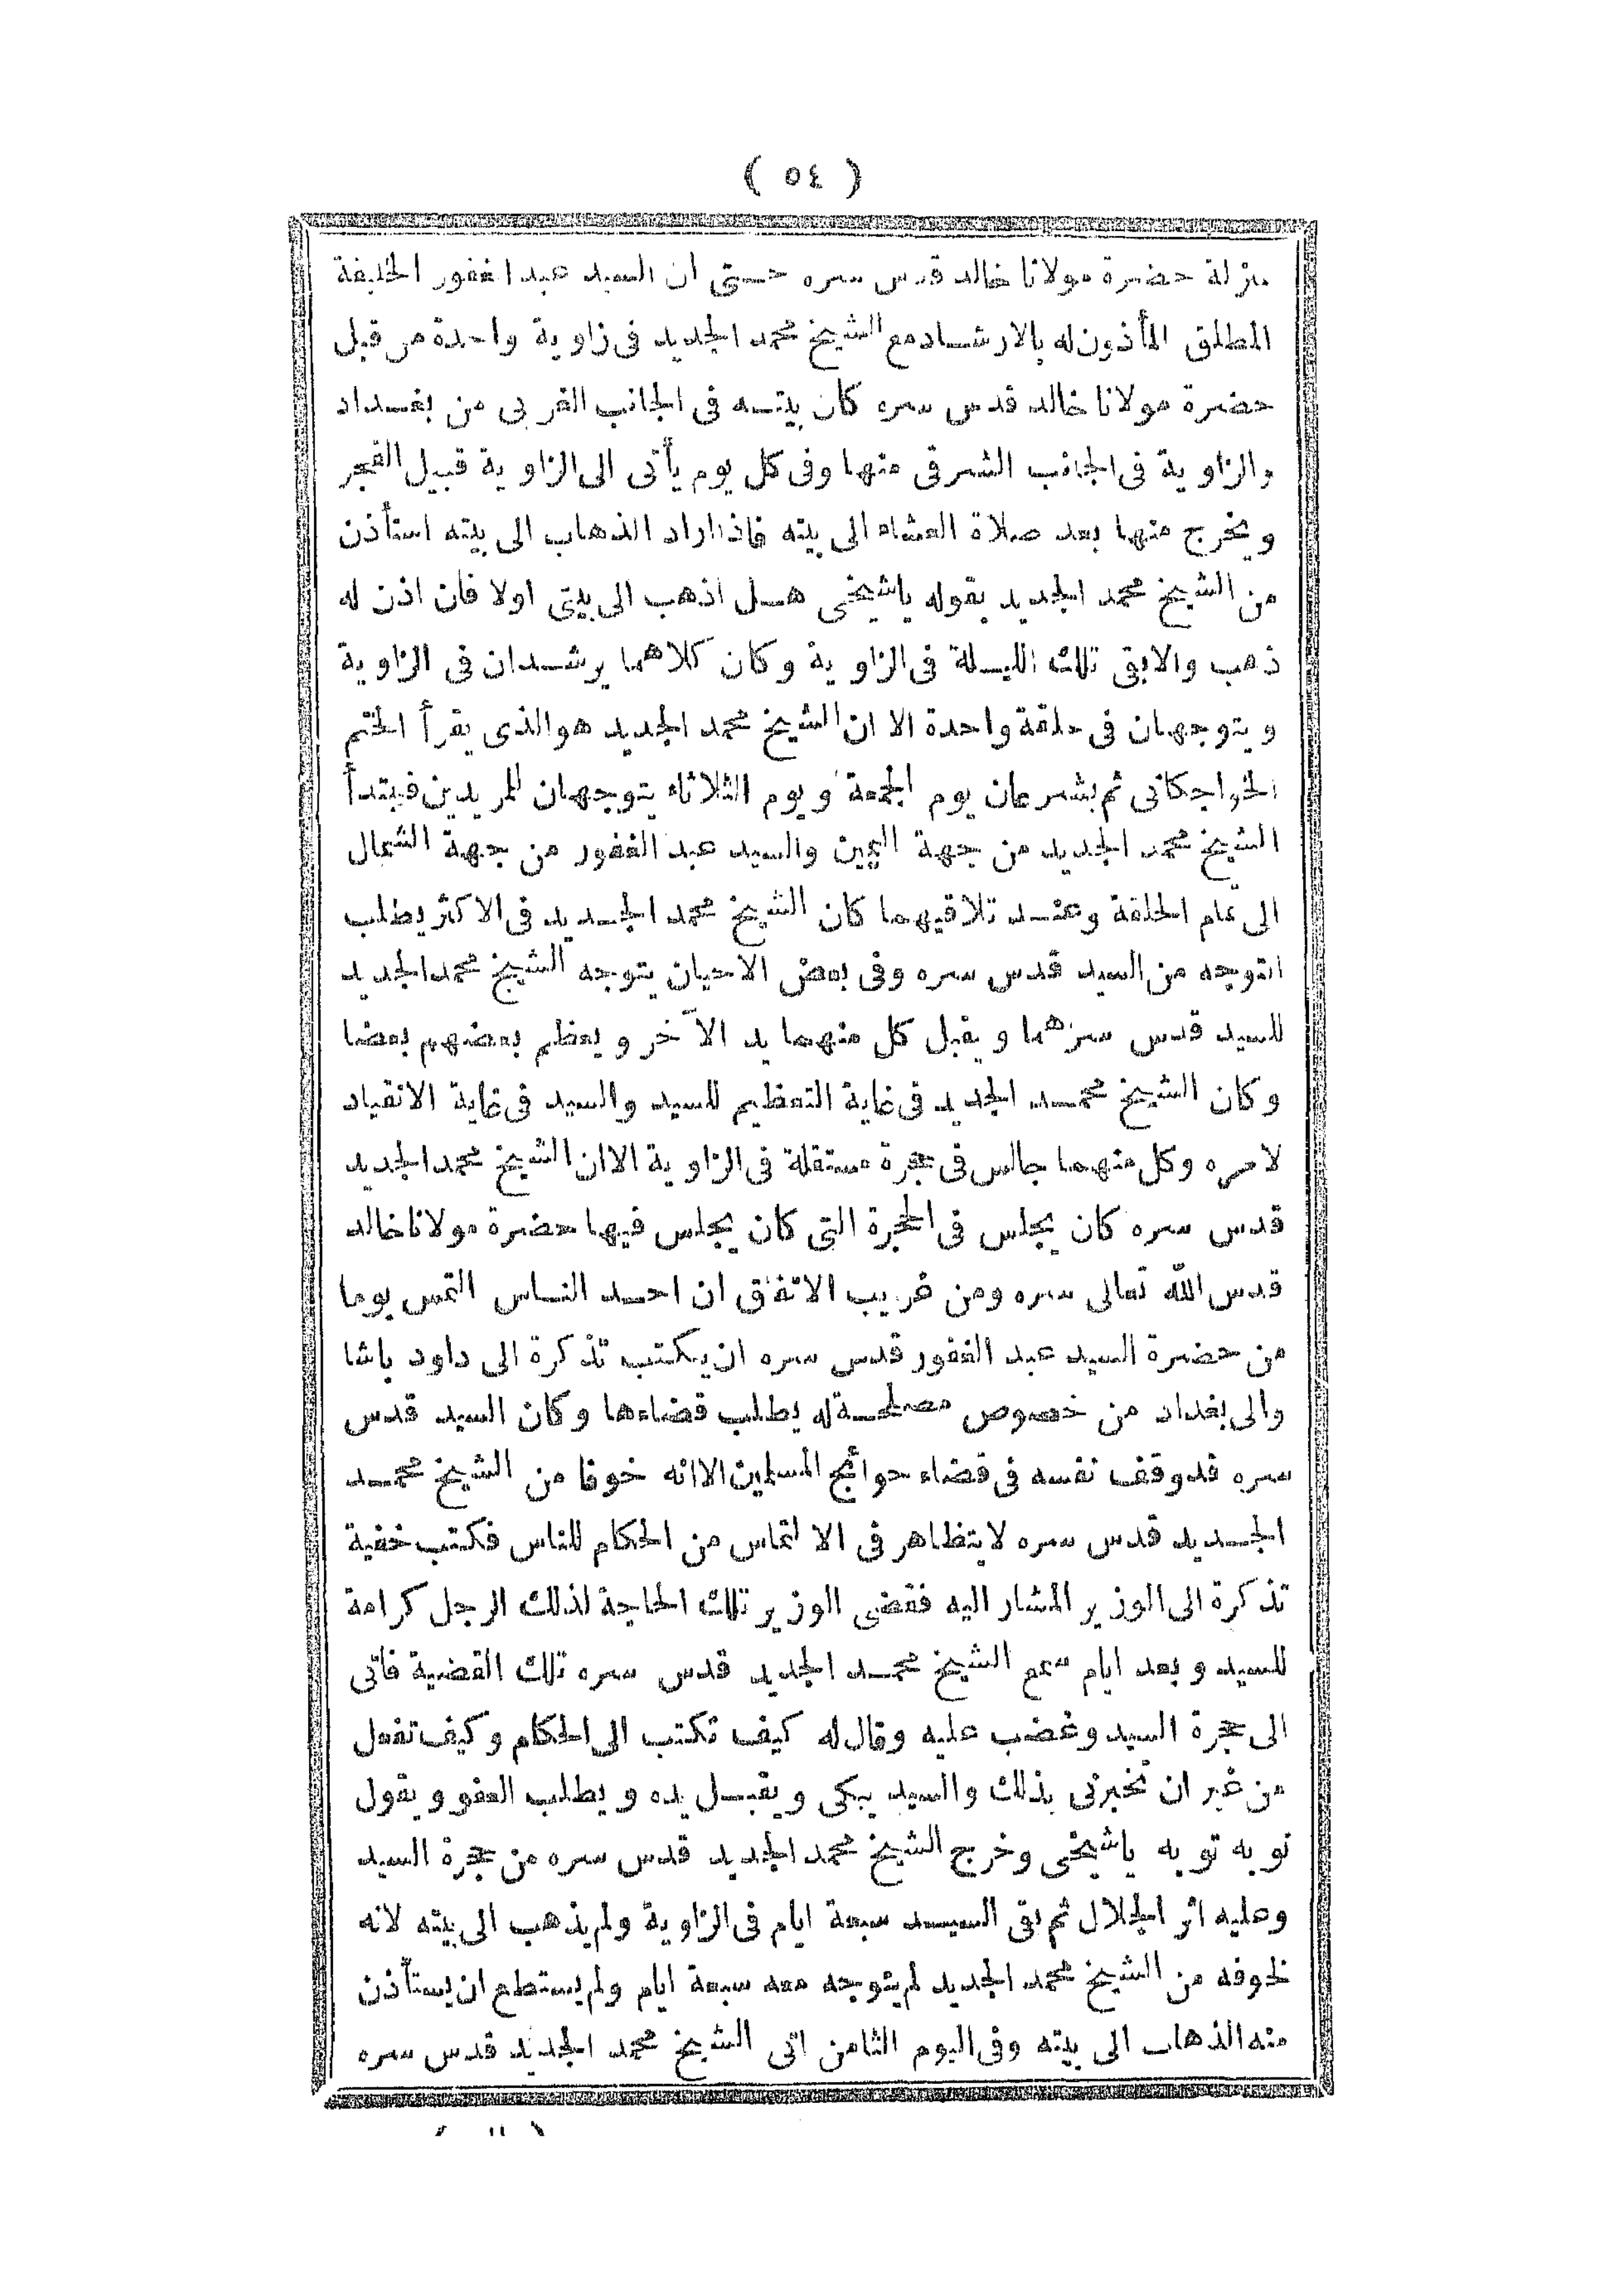 ( ٥٤ )
منزلة حضرة مولانا خالد قدس سره حتى ان السيد عبد الغفور الخليفة
المطلق المأذون له بالارشاد مع الشيخ محمد الجديد فى زاوية واحدة من قبل
حضرة مولانا خالد قدس سره كان بيته فى الجانب الغربى من بغداد
والزاوية فى الجانب الشرقى منها وفى كل يوم يأتى الى الزاوية قبيل الفجر
ويخرج منها بعد صلاة العشاء الى بيته فاذا اراد الذهاب الى بيته استأذن
من الشيخ محمد الجديد بقوله ياشيخى هل اذهب الى بيتى اولا فان اذن له
ذهب والابقى تلك الليلة فى الزاوية وكان كلاهما يرشدان فى الزاوية
ويتوجهان فى حلقة واحدة الا ان الشيخ محمد الجديد هو الذى يقرأ الختم
الخواجكانى ثم يشرعان يوم الجمعة ويوم الثلاثاء يتوجهان للمريدين فيبتدأ
الشيخ محمد الجديد من جهة اليمين والسيد عبد الغفور من جهة الشمال
الى تمام الحلقة وعند تلاقيهما كان الشيخ محمد الجديد فى الاكثر يطلب
التوجه من السيد قدس سره وفى بعض الاحيان يتوجه الشيخ محمد الجديد
للسيد قدس سرهما ويقبل كل منهما يد الآخر ويعظم بعضهم بعضا
وكان الشيخ محمد الجديد فى غاية التعظيم للسيد والسيد فى غاية الانقياد
لامره وكل منهما جالس فى حجرة مستقلة فى الزاوية الا ان الشيخ محمد الجديد
قدس سره كان يجلس فى الحجرة التى كان يجلس فيها حضرة مولانا خالد
قدس الله تعالى سره ومن غريب الاتفاق ان احد الناس التمس يوما
من حضرة السيد عبد الغفور قدس سره ان يكتب تذكرة الى داود باشا
والى بغداد من خصوص مصلحة له يطلب قضاءها وكان السيد قدس
سره قد وقف نفسه فى قضاء حوائج المسلمين الا انه خوفا من الشيخ محمد
الجديد قدس سره لا يتظاهر فى الالتماس من الحكام للناس فكتب خفية
تذكرة الى الوزير المشار اليه فقضى الوزير تلك الحاجة لذلك الرجل كرامة
للسيد وبعد ايام سمع الشيخ محمد الجديد قدس سره تلك القضية فاتى
الى حجرة السيد وغضب عليه وقال له كيف تكتب الى الحكام وكيف تفعل
من غير ان تخبرنى بذلك والسيد يبكى ويقبل يده ويطلب العفو ويقول
توبه توبه ياشيخى وخرج الشيخ محمد الجديد قدس سره من حجرة السيد
وعليه اثر الجلال ثم بقى السيد سبعة ايام فى الزاوية ولم يذهب الى بيته لانه
لخوفه من الشيخ محمد الجديد لم يتوجه معه سبعة ايام ولم يستطع ان يستأذن
منه الذهاب الى بيته وفى اليوم الثامن اتى الشيخ محمد الجديد قدس سره